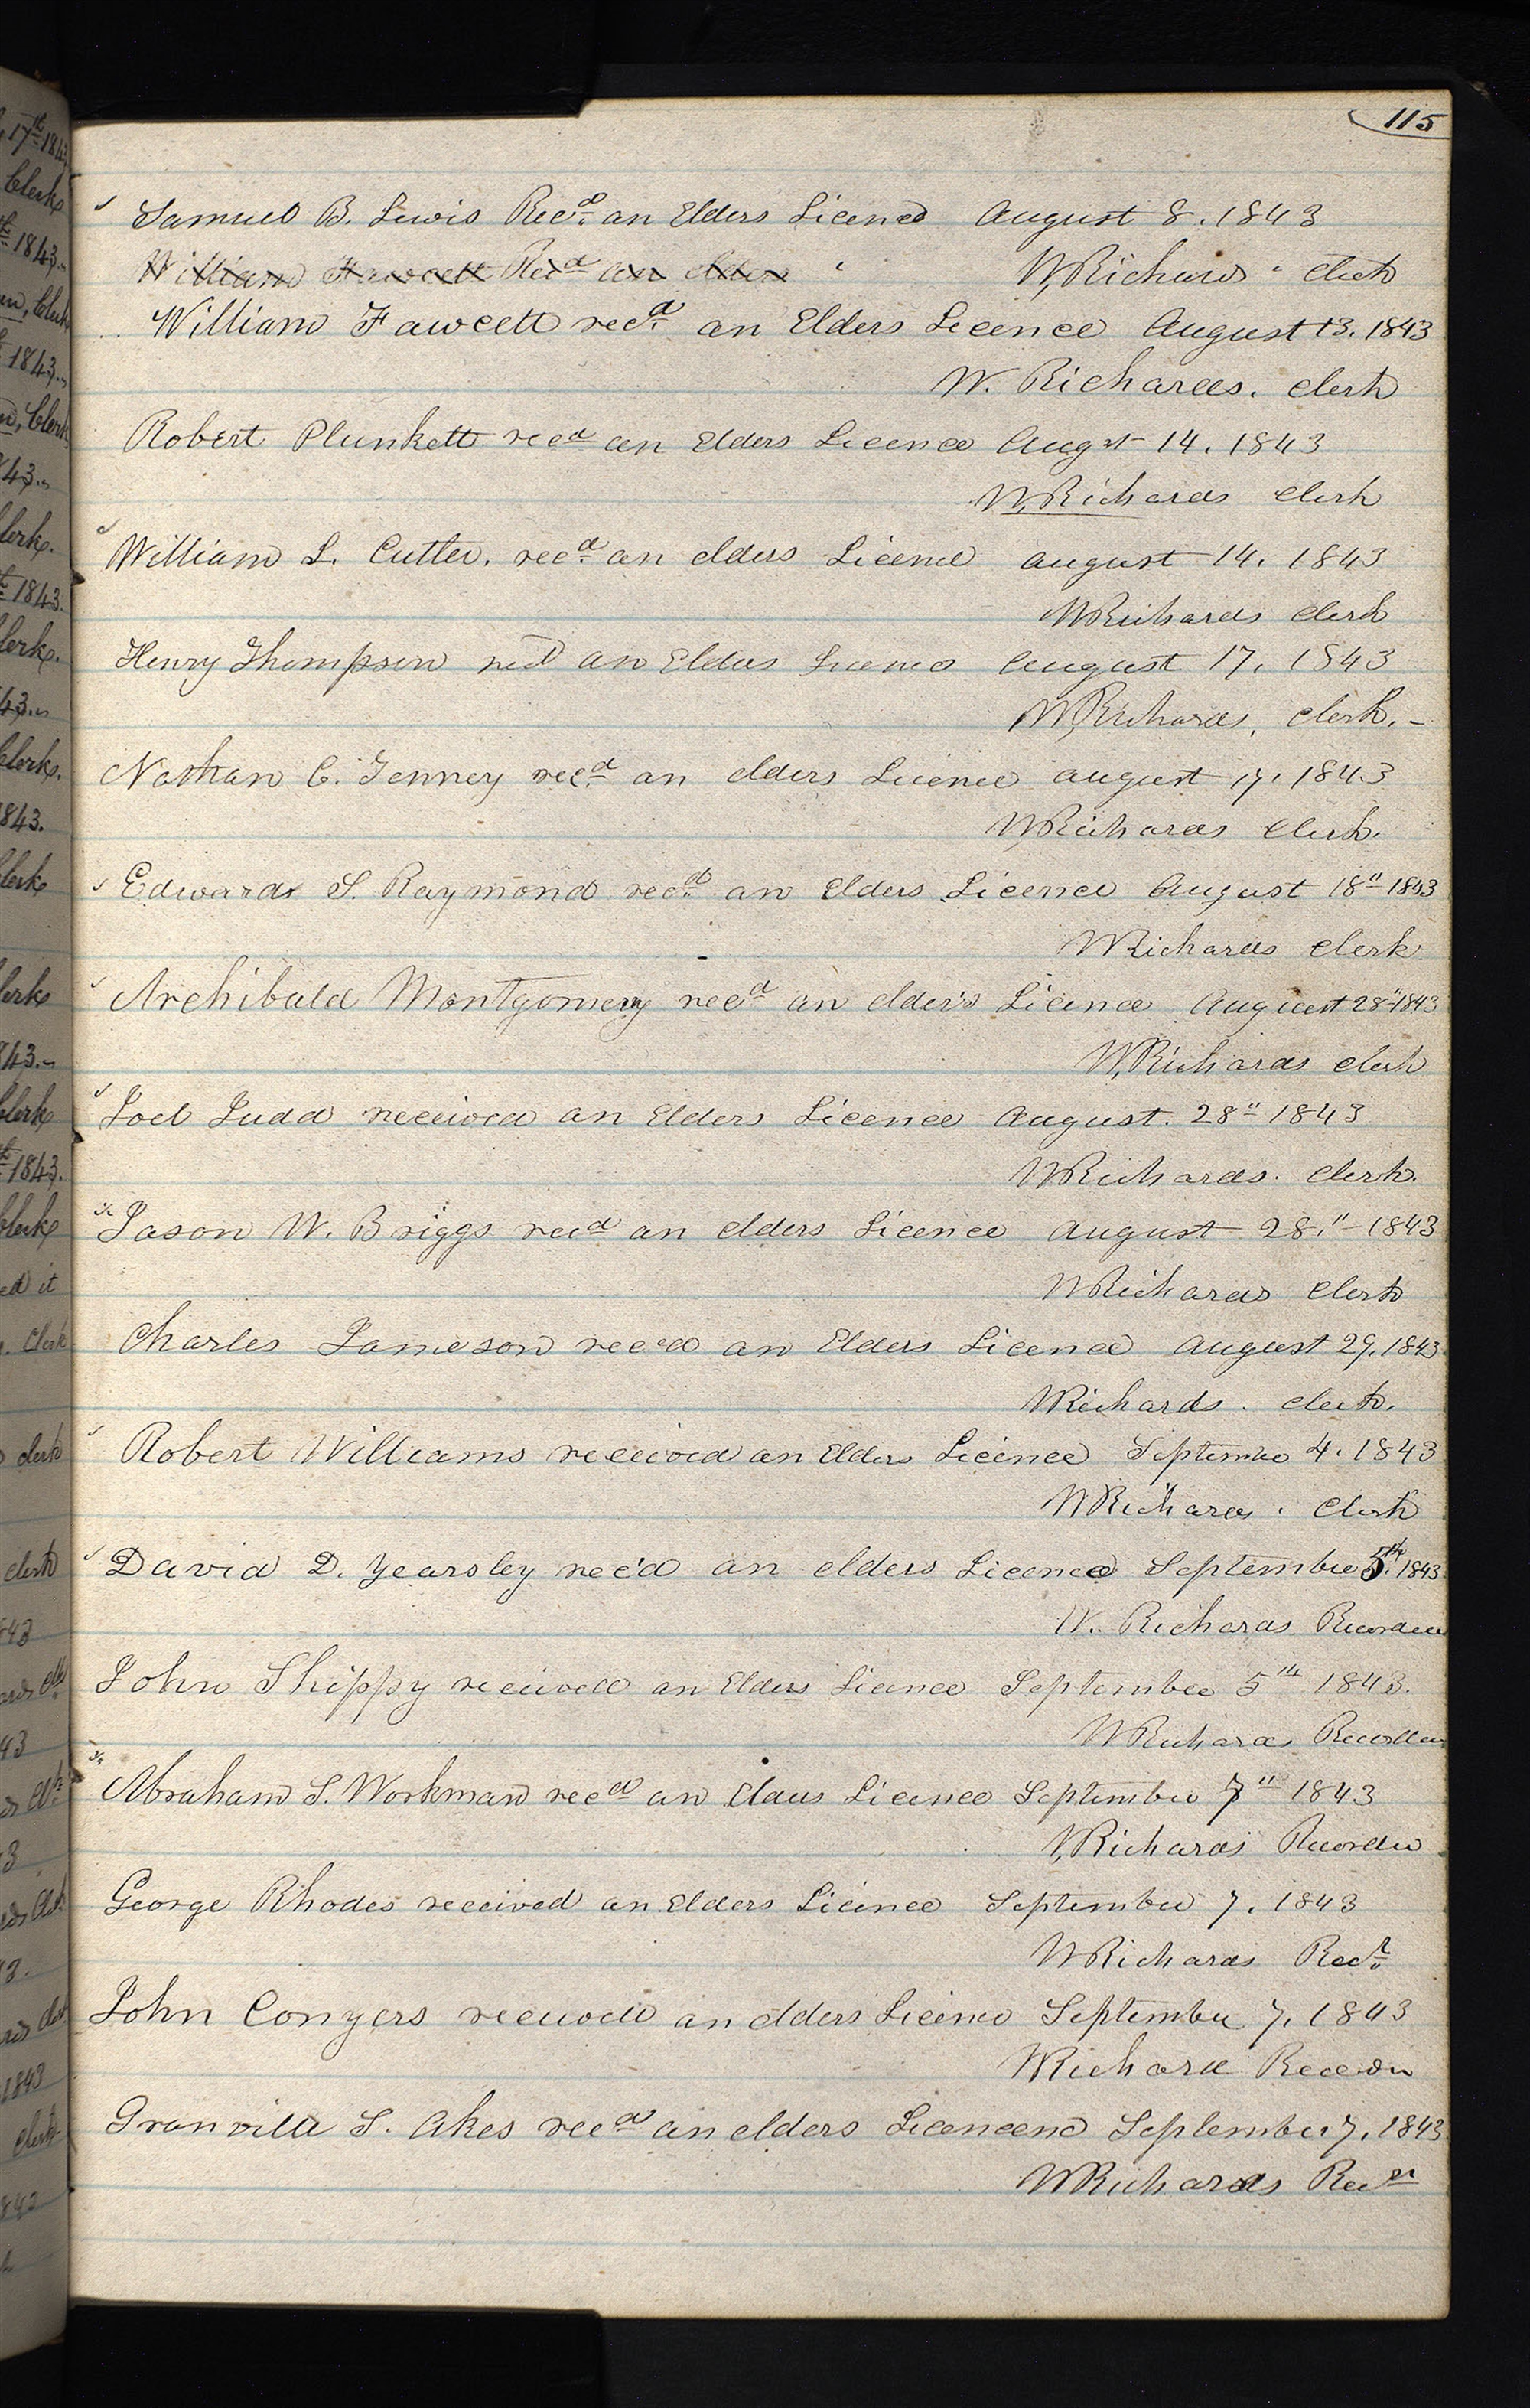 115
Samuel B. Lewis Recd. an Elders Licence August 8. 1843
William Fawcett Recd an elders
W, Richards clerk
William Fawcett recd. an Elders Licence August 13. 1843
W. Richards. clerk
Robert Plunkett recd an Elders Licence Augst 14. 1843
W, Richards clerk
William L. Cutler. recd. an elders Licence august 14. 1843
W Richards clerk
Henry Thompson recd an Elders Licence August 17. 1843
W, Richards, clerk. –
Nathan C. Tenney recd. an elders Licence august 17. 1843
W Richards clerk.
Edward S. Raymond recd. an Elders Licence August 18" 1843
W Richards clerk
Archibald Montgomery recd an elder's Licence August 28" 1843
W, Richards clerk
Joel Judd received an Elders Licence August. 28" 1843
W Richards. clerk.
Jason W. Briggs recd an elders Licence August 28." 1843
W Richards clerk
Charles Jameson rec'd an Elders Licence August 29, 1843
W Richards. clerk.
Robert Williams received an Elders Licence September 4. 1843
W Richards. clerk
David D. Yearsley rec'd an elders Licence September 5th. 1843
W. Richards Recorder
John Shippy received an Elders Licence September 5th 1843.
W Richards Recorder
Abraham S. Workman recd an Elders Licence September 7" 1843
W, Richards Recorder
George Rhodes received an Elders Licence September 7. 1843
W Richards Recr.
John Conyers received an elders Licence September 7, 1843
W Richards Recordr
Granville S. Akes recd an elders September 7, 1843
W Richards Recr